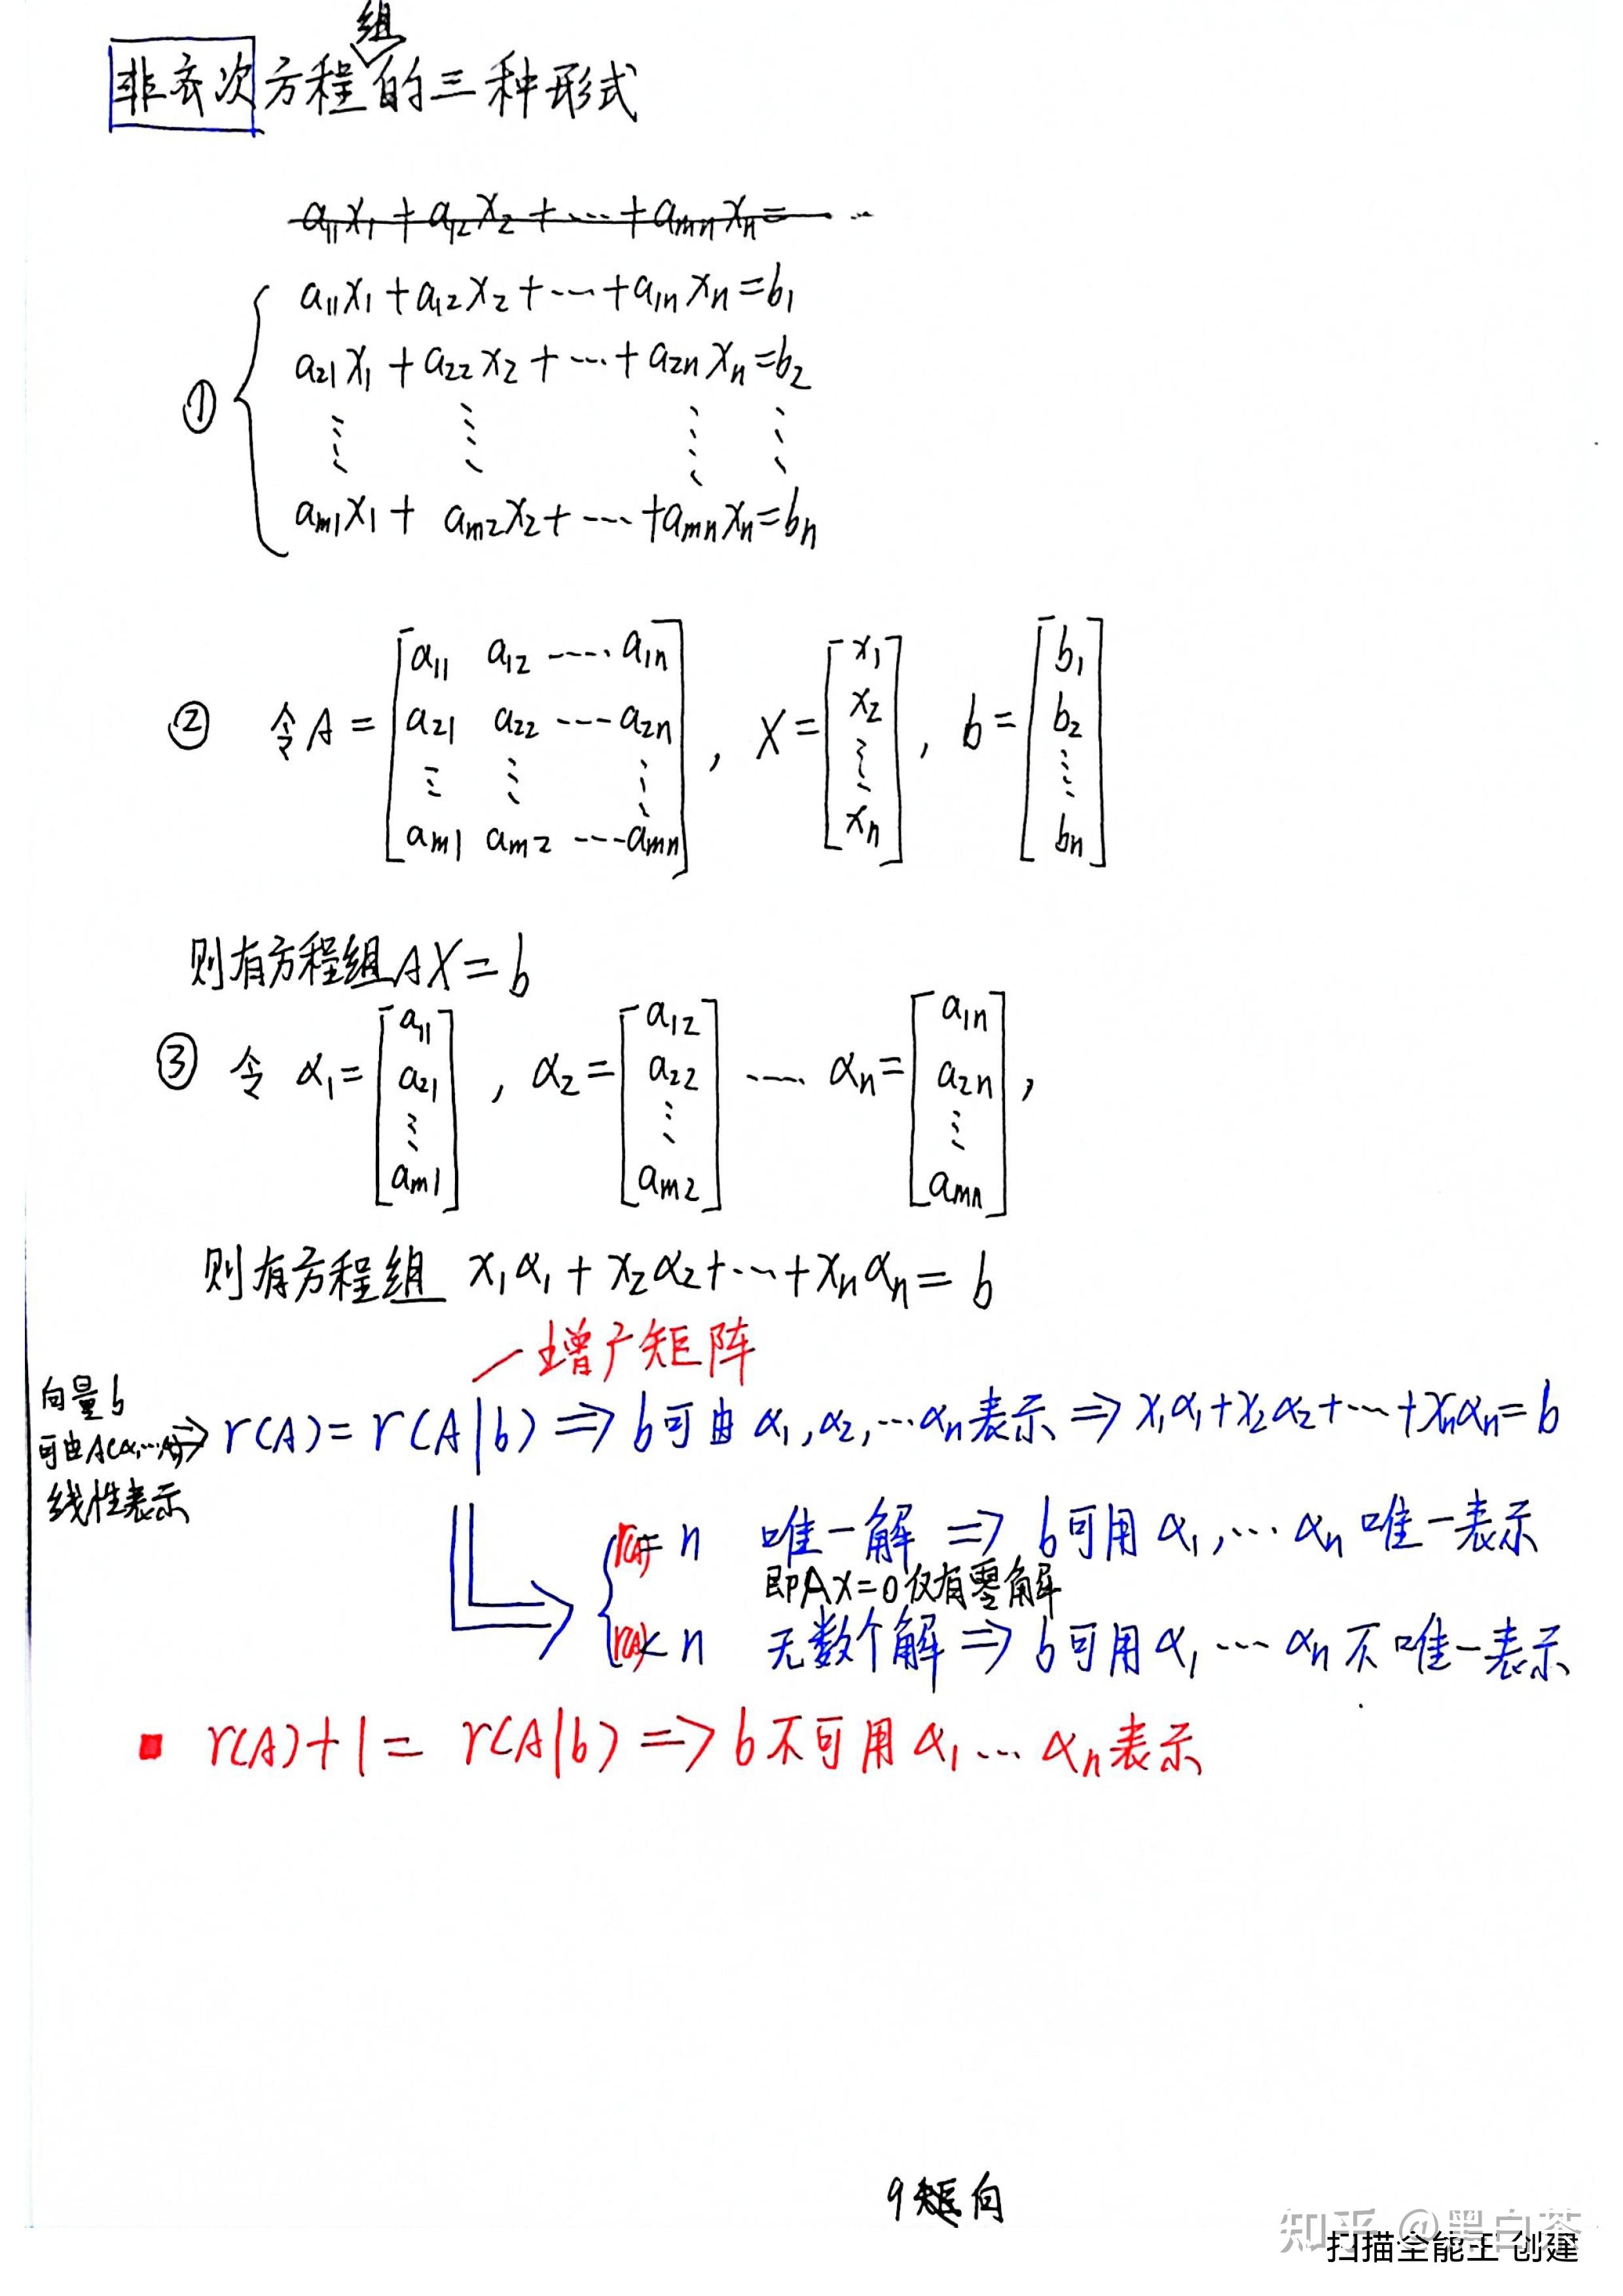 组
非齐次方程的三种形式
a₁₁x₁+a₁₂x₂+⋯+aₘₙxₙ=⋯
a₁₁x₁+a₁₂x₂+⋯+a₁ₙxₙ=b₁
a₂₁x₁+a₂₂x₂+⋯+a₂ₙxₙ=b₂
①
⋮ ⋮ ⋮ ⋮
aₘ₁x₁+aₘ₂x₂+⋯+aₘₙxₙ=bₙ
② 令A=[a₁₁ a₁₂ ⋯ a₁ₙ; a₂₁ a₂₂ ⋯ a₂ₙ; ⋮ ⋮ ⋮; aₘ₁ aₘ₂ ⋯ aₘₙ], X=[x₁; x₂; ⋮; xₙ], b=[b₁; b₂; ⋮; bₙ]
则有方程组AX=b
③ 令 α₁=[a₁₁; a₂₁; ⋮; aₘ₁], α₂=[a₁₂; a₂₂; ⋮; aₘ₂] ⋯ αₙ=[a₁ₙ; a₂ₙ; ⋮; aₘₙ],
则有方程组 x₁α₁+x₂α₂+⋯+xₙαₙ=b
增广矩阵
向量b
可由A(α₁⋯αₙ)⇒
线性表示
r(A)=r(A|b)⇒b可由α₁,α₂,⋯αₙ表示⇒x₁α₁+x₂α₂+⋯+xₙαₙ=b
r(A)=n 唯一解⇒b可用α₁,⋯αₙ唯一表示
即AX=0仅有零解
r(A)<n 无数个解⇒b可用α₁⋯αₙ不唯一表示
r(A)+1=r(A|b)⇒b不可用α₁⋯αₙ表示
9 矩向
知乎 @黑白茶
扫描全能王 创建